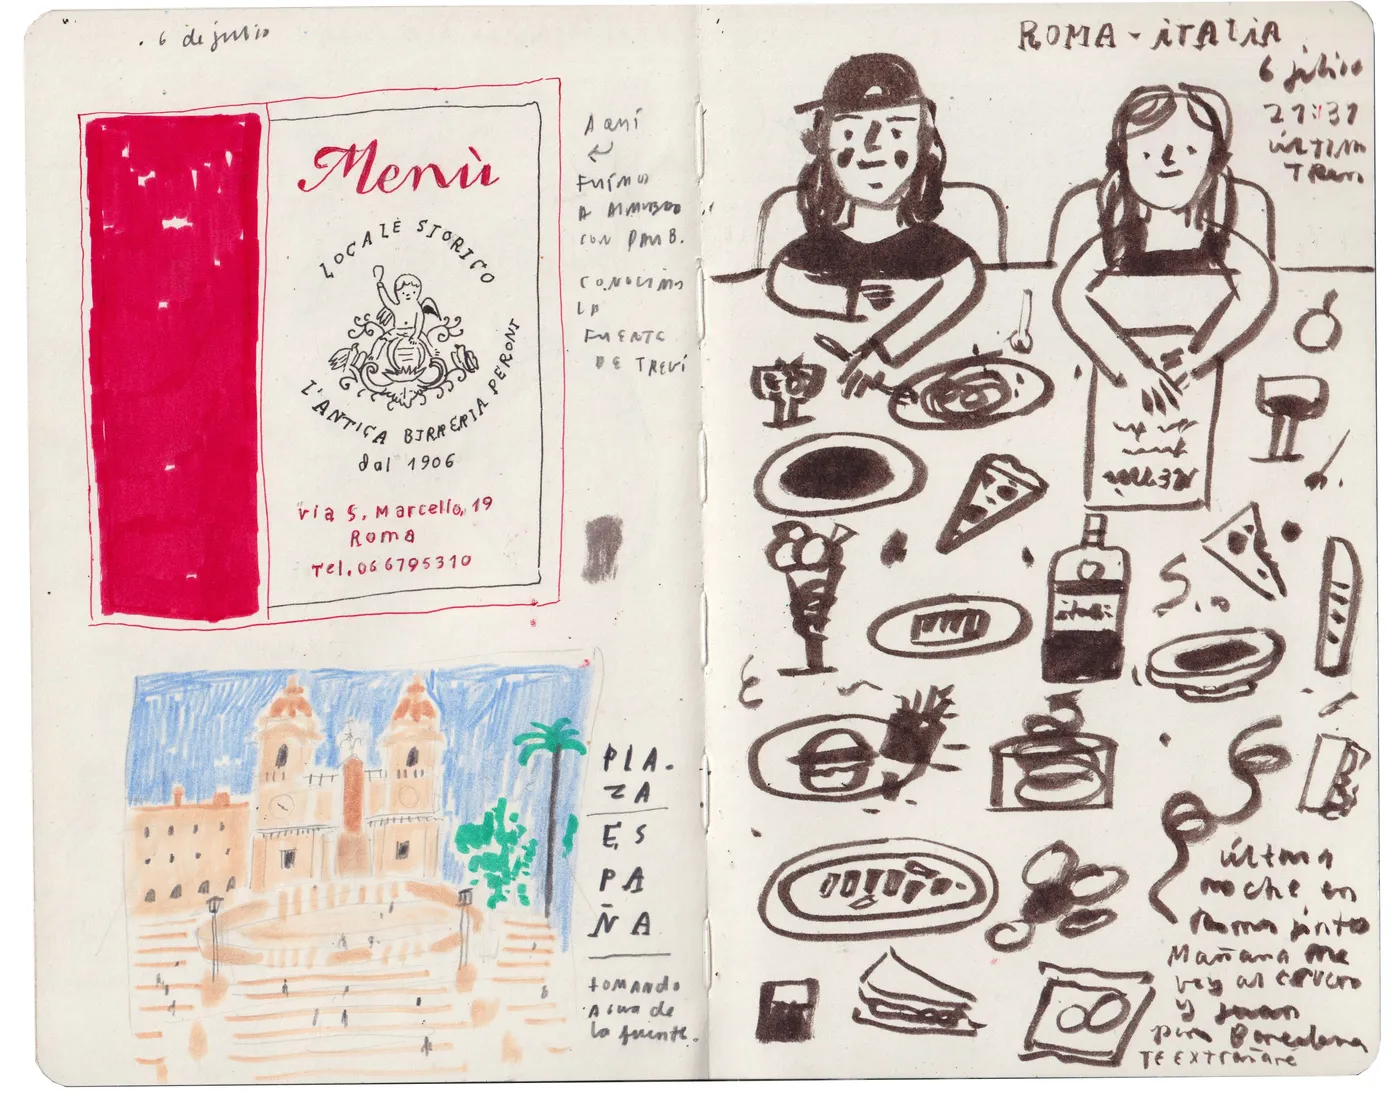 6 de julio
Menù
LOCALE STORICO
L'ANTICA BIRRERIA PERONI
dal 1906
via S. Marcello, 19
Roma
Tel. 06 6795310
Aquí
FUIMOS
A
CON
CONOCIMOS
LA
FUENTE
DE TREVI
PLA-
ZA
ES
PA
ÑA
TOMANDO
AGUA de
la fuente.
ROMA - iTALiA
6 julio
21:31
ÚLTIM
TREN
última
noche en
Roma junto
Mañana me
voy al crucero
y Juan
para Barcelona
TE EXTRAÑARE